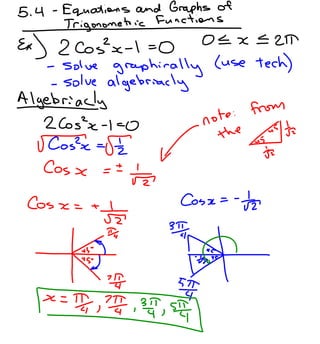 5.4 - Equations and Graphs of
Trigonometric Functions
Ex) 2cos²x-1=0 0≤x≤2π
- solve graphically (use tech)
- solve algebriacly
Algebriacly
2cos²x-1=0
√cos²x = √1/2
Cos x = ± 1/√2
note: from
the
45° 1/√2
45°
1/√2
Cos x = + 1/√2
Cosx = - 1/√2
π/4
45°
45°
7π/4
3π/4
45°
5π/4
x = π/4, 7π/4, 3π/4, 5π/4